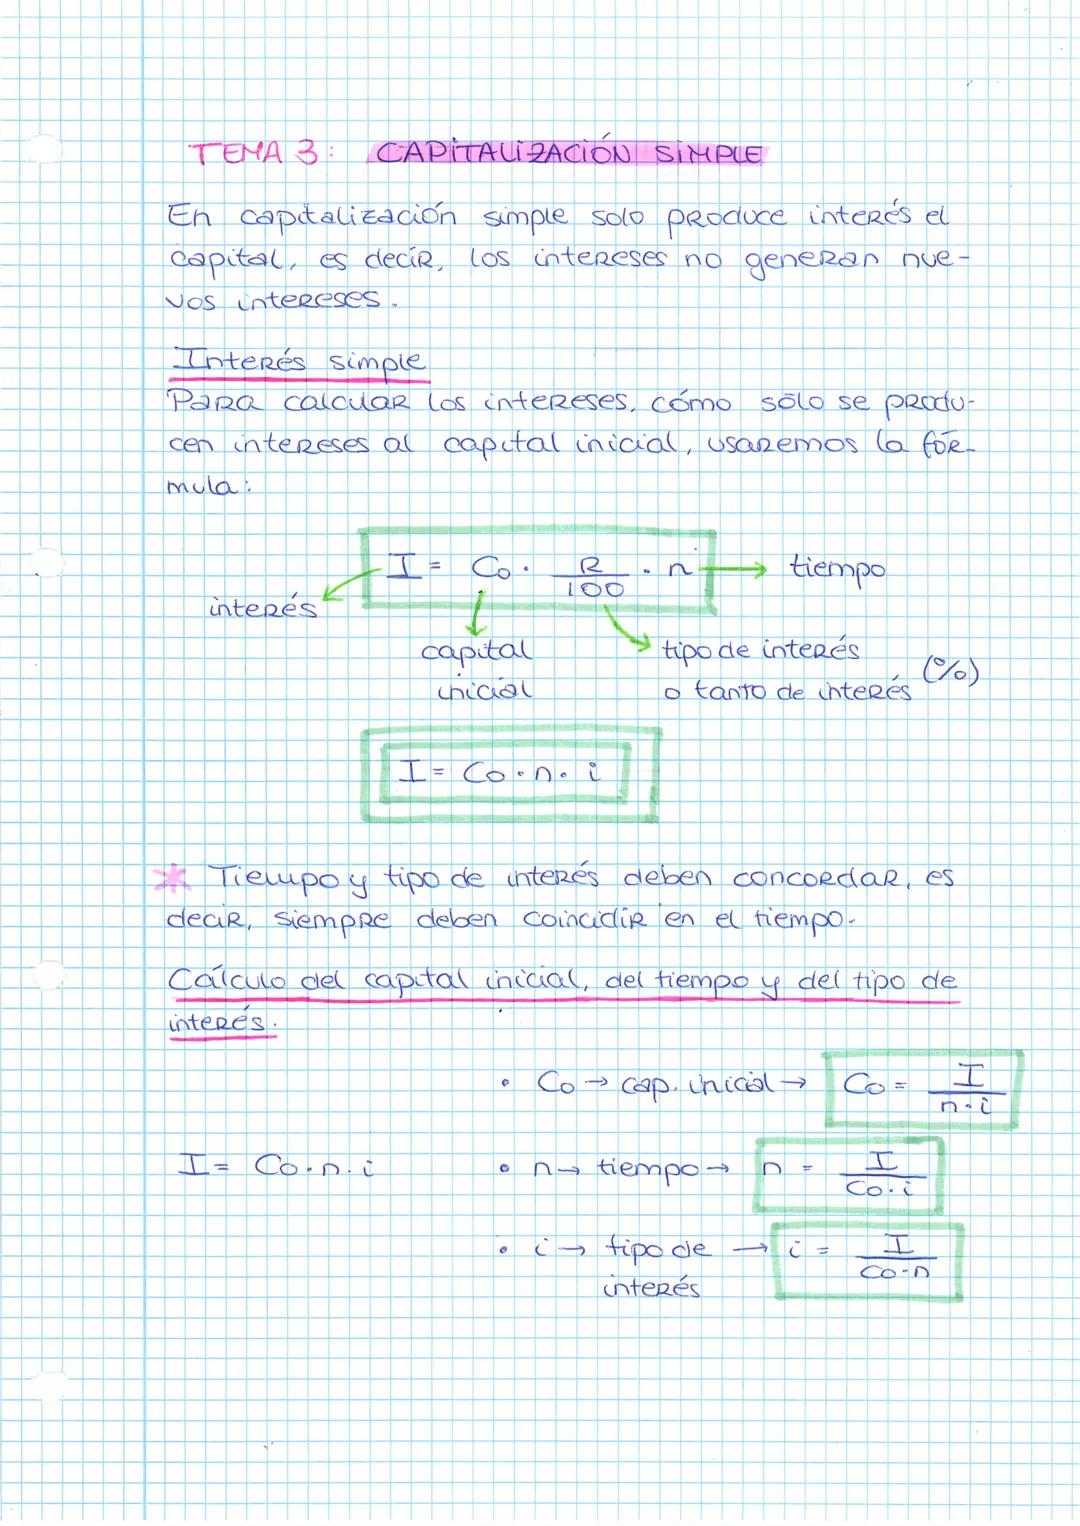 TEMA 3: CAPITALIZACIÓN SIMPLE
En capitalización simple solo produce interés el
capital, es decir, los intereses no generan nue-
vos intereses.
Interés simple
Para calcular los intereses, cómo sólo se produ-
cen intereses al capital inicial, usaremos la fór-
mula:
I = Co · R/100 · n → tiempo
interés
capital
inicial
tipo de interés
o tanto de interés (%)
I = Co · n · i
* Tiempo y tipo de interés deben concordar, es
decir, siempre deben coincidir en el tiempo.
Cálculo del capital inicial, del tiempo y del tipo de
interés.
• Co → cap. inicial → Co = I/n·i
I = Co·n·i
• n → tiempo → n = I/Co·i
• i → tipo de interés → i = I/Co·n